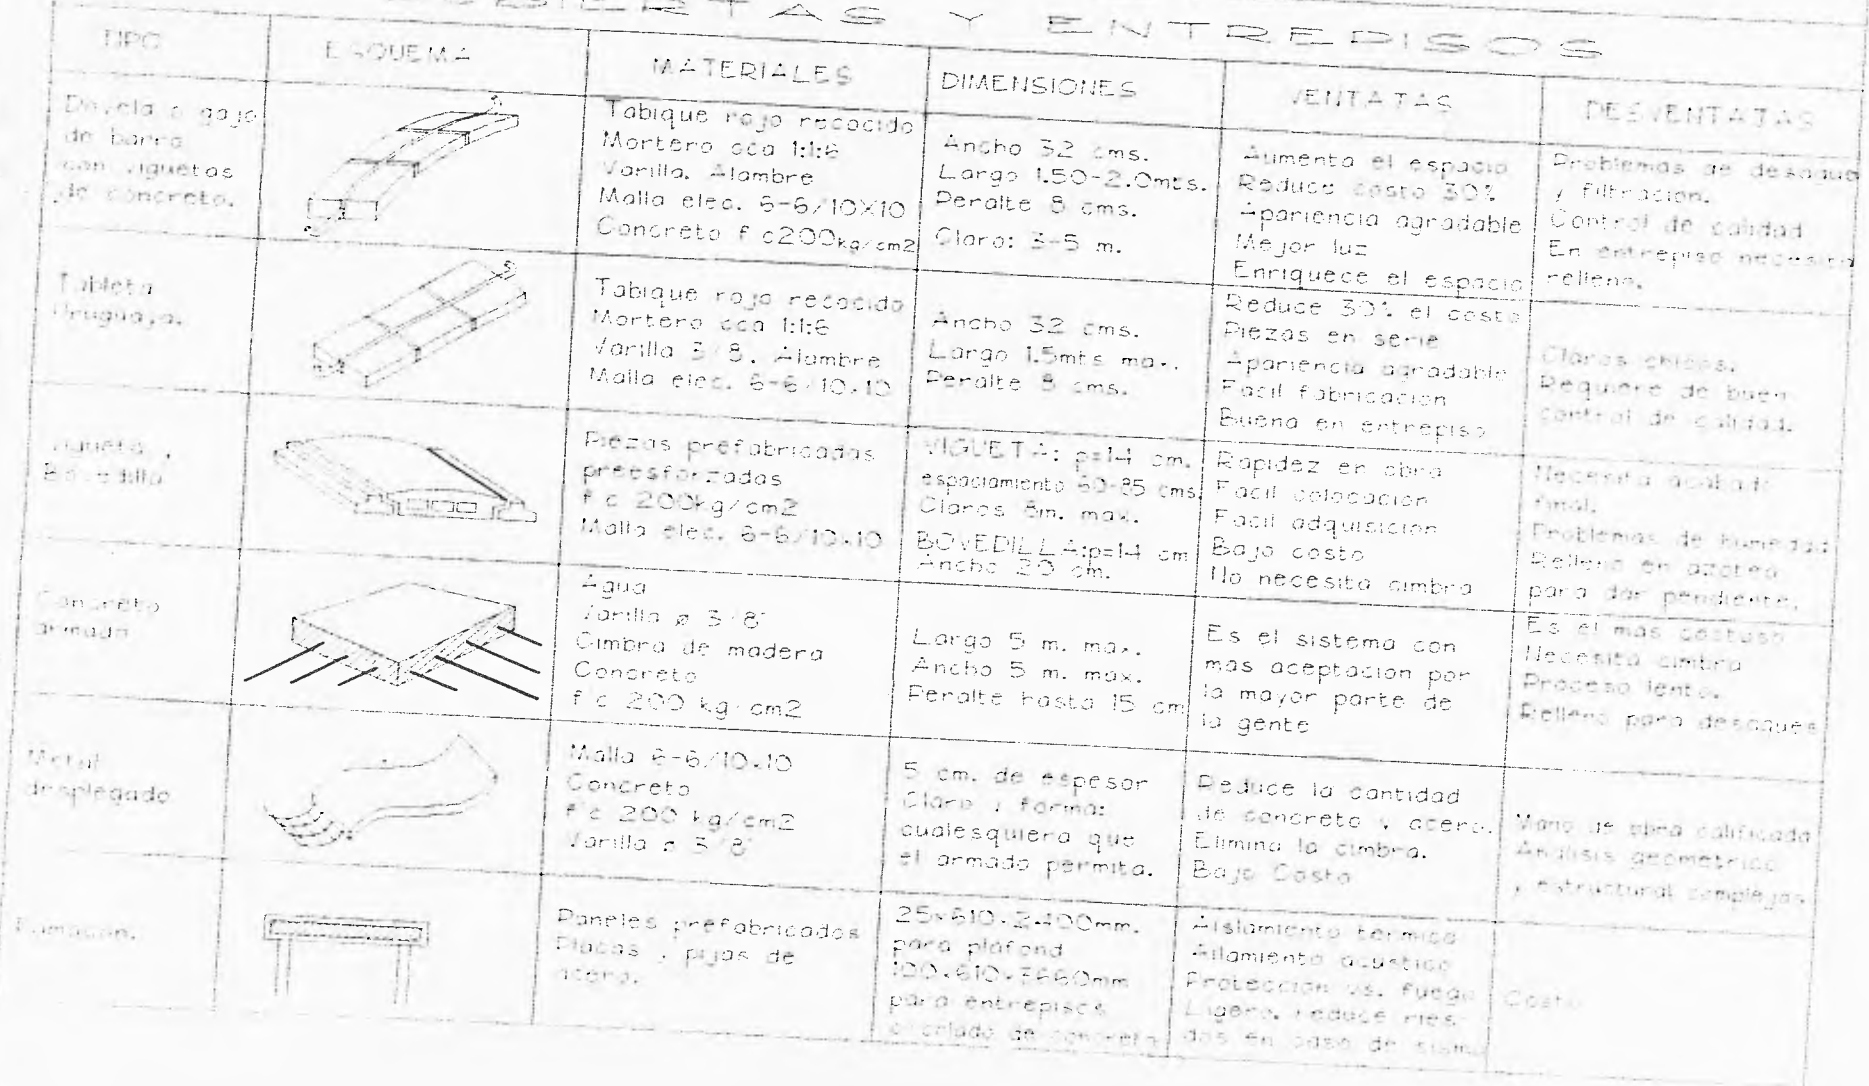 CUBIERTAS Y ENTREPISOS
TIPO
ESQUEMA
MATERIALES
DIMENSIONES
VENTAJAS
DESVENTAJAS
Dovela o gajo
de barro
con viguetas
de concreto.
Tabique rojo recocido
Mortero cca 1:1:6
Varilla. Alambre
Malla elec. 6-6/10X10
Concreto f c200kg/cm2
Ancho 32 cms.
Largo 1.50-2.0mts.
Peralte 8 cms.
Claro: 3-5 m.
Aumenta el espacio
Reduce costo 30%
Apariencia agradable
Mejor luz
Enriquece el espacio
Problemas de desague
y filtracion.
Control de calidad
En entrepiso necesita
relleno.
Tableta
Uruguaya.
Tabique rojo recocido
Mortero cca 1:1:6
Varilla 3/8. Alambre
Malla elec. 6-6/10x10
Ancho 32 cms.
Largo 1.5mts max.
Peralte 8 cms.
Reduce 30% el costo
Piezas en serie
Apariencia agradable
Facil fabricacion
Buena en entrepiso
Claros chicos.
Requiere de buen
control de calidad.
Vigueta y
Bovedilla
Piezas prefabricadas
preesforzadas
f c 200kg/cm2
Malla elec. 6-6/10x10
VIGUETA: p=14 cm.
espaciamiento 60-85 cms.
Claros 8m. max.
BOVEDILLA:p=14 cm
Ancho 20 cm.
Rapidez en obra
Facil colocacion
Facil adquisicion
Bajo costo
No necesita cimbra
Necesita acabado
final.
Problemas de humedad
Relleno en azotea
para dar pendiente.
Concreto
armado
Agua
Varilla ø 3/8"
Cimbra de madera
Concreto
f c 200 kg/cm2
Largo 5 m. max.
Ancho 5 m. max.
Peralte hasta 15 cm
Es el sistema con
mas aceptacion por
la mayor parte de
la gente
Es el mas costoso
Necesita cimbra
Proceso lento.
Relleno para desagues
Metal
desplegado
Malla 6-6/10x10
Concreto
f c 200 kg/cm2
Varilla ø 3/8"
5 cm. de espesor
Claro y forma:
cualesquiera que
el armado permita.
Reduce la cantidad
de concreto y acero.
Elimina la cimbra.
Bajo Costo
Mano de obra calificada
Analisis geometrico
y estructural complejos
Paneles prefabricados
Placas y pijas de
acero.
25x610x2400mm.
para plafond
100x610x3660mm
para entrepisos
o colado de concreto
Aislamiento termico
Ailamiento acustico
Proteccion vs. fuego
Ligero, reduce ries-
gos en caso de sismo
Costo